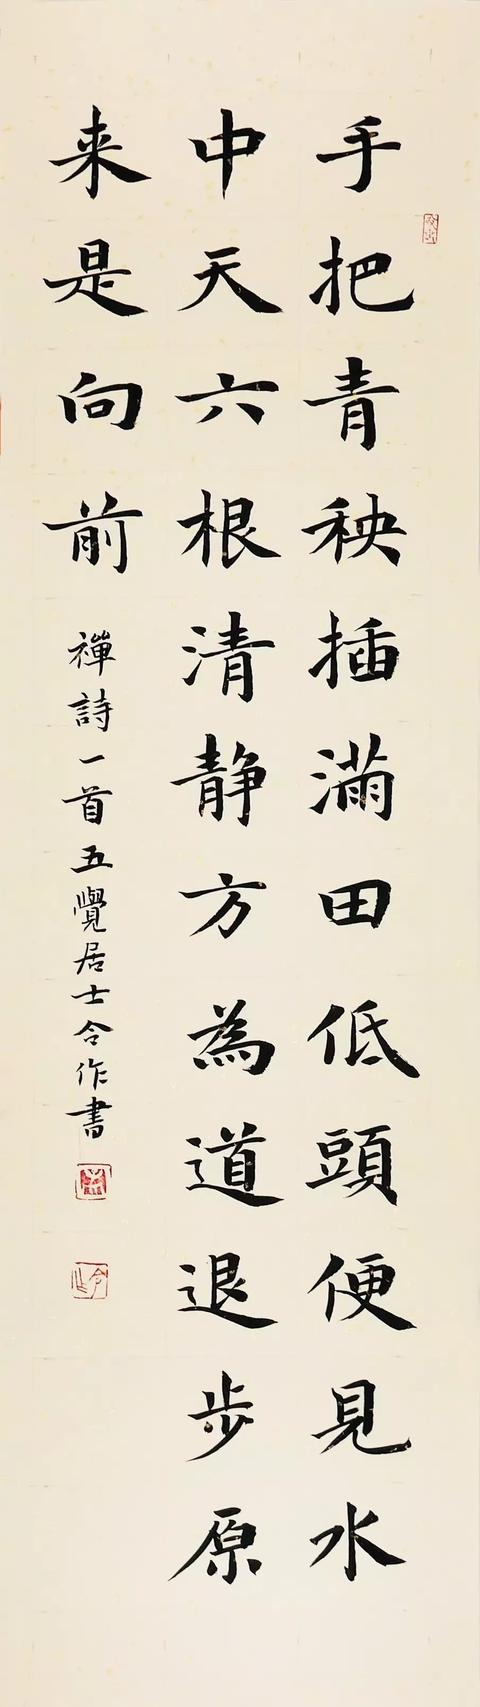 手把青秧插滿田低頭便見水
中天六根清静方為道退步原
来是向前
禪詩一首五覺居士令作書